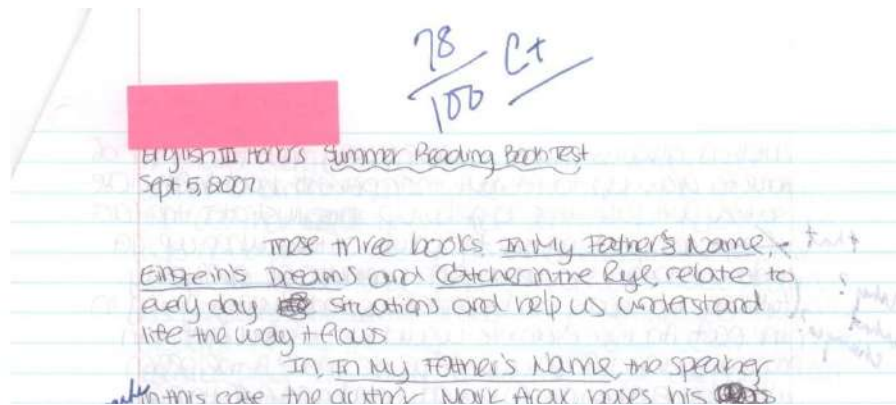 78/100 C+
English III Honors Summer Reading Book Test
Sept 5, 2007
These three books, In My Father's Name,
Einstein's Dreams and Catcher in the Rye, relate to
every day situations and help us understand
life the way it flows
In, In My Father's Name, the speaker,
in this case the author Mark Arax bases his